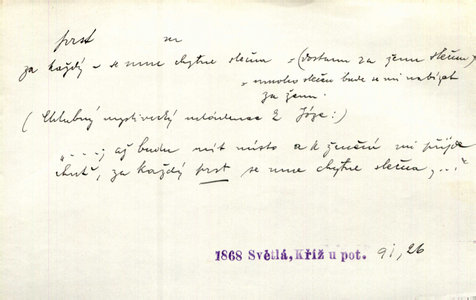 prst m
za každý ~ se mne chytne slečna = (dostanu za ženu slečnu)
= mnoho slečen bude se mi nabízet
za ženu.
(Chlubný myslivecký mládenec L Józe:)
"....; až budu mít místo a k ženění mi přijde
chuť, za každý prst se mne chytne slečna,..."
1868 Světlá, Kříž u pot. 91, 26